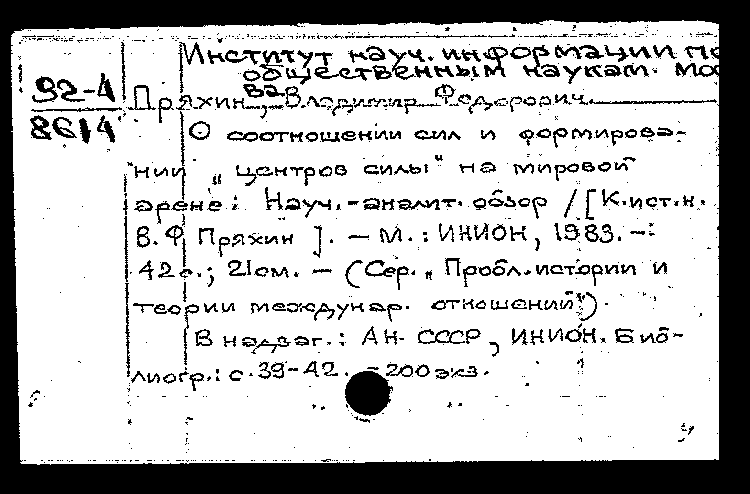 Институт науч. информации по
общественным наукам. Мос
92-4
8614
Пряхин, Владимир Федорович.
О соотношении сил и формирова-
нии „центров силы" на мировой
арене: Науч.-аналит. обзор / [К.ист.н.
В.Ф Пряхин ]. – М.: ИНИОН, 1983. –
42с.; 21см. – (Сер. „Пробл.истории и
теории междунар. отношений").
В надзаг.: АН СССР, ИНИОН. Биб-
лиогр.: с.39-42. – 200 экз.